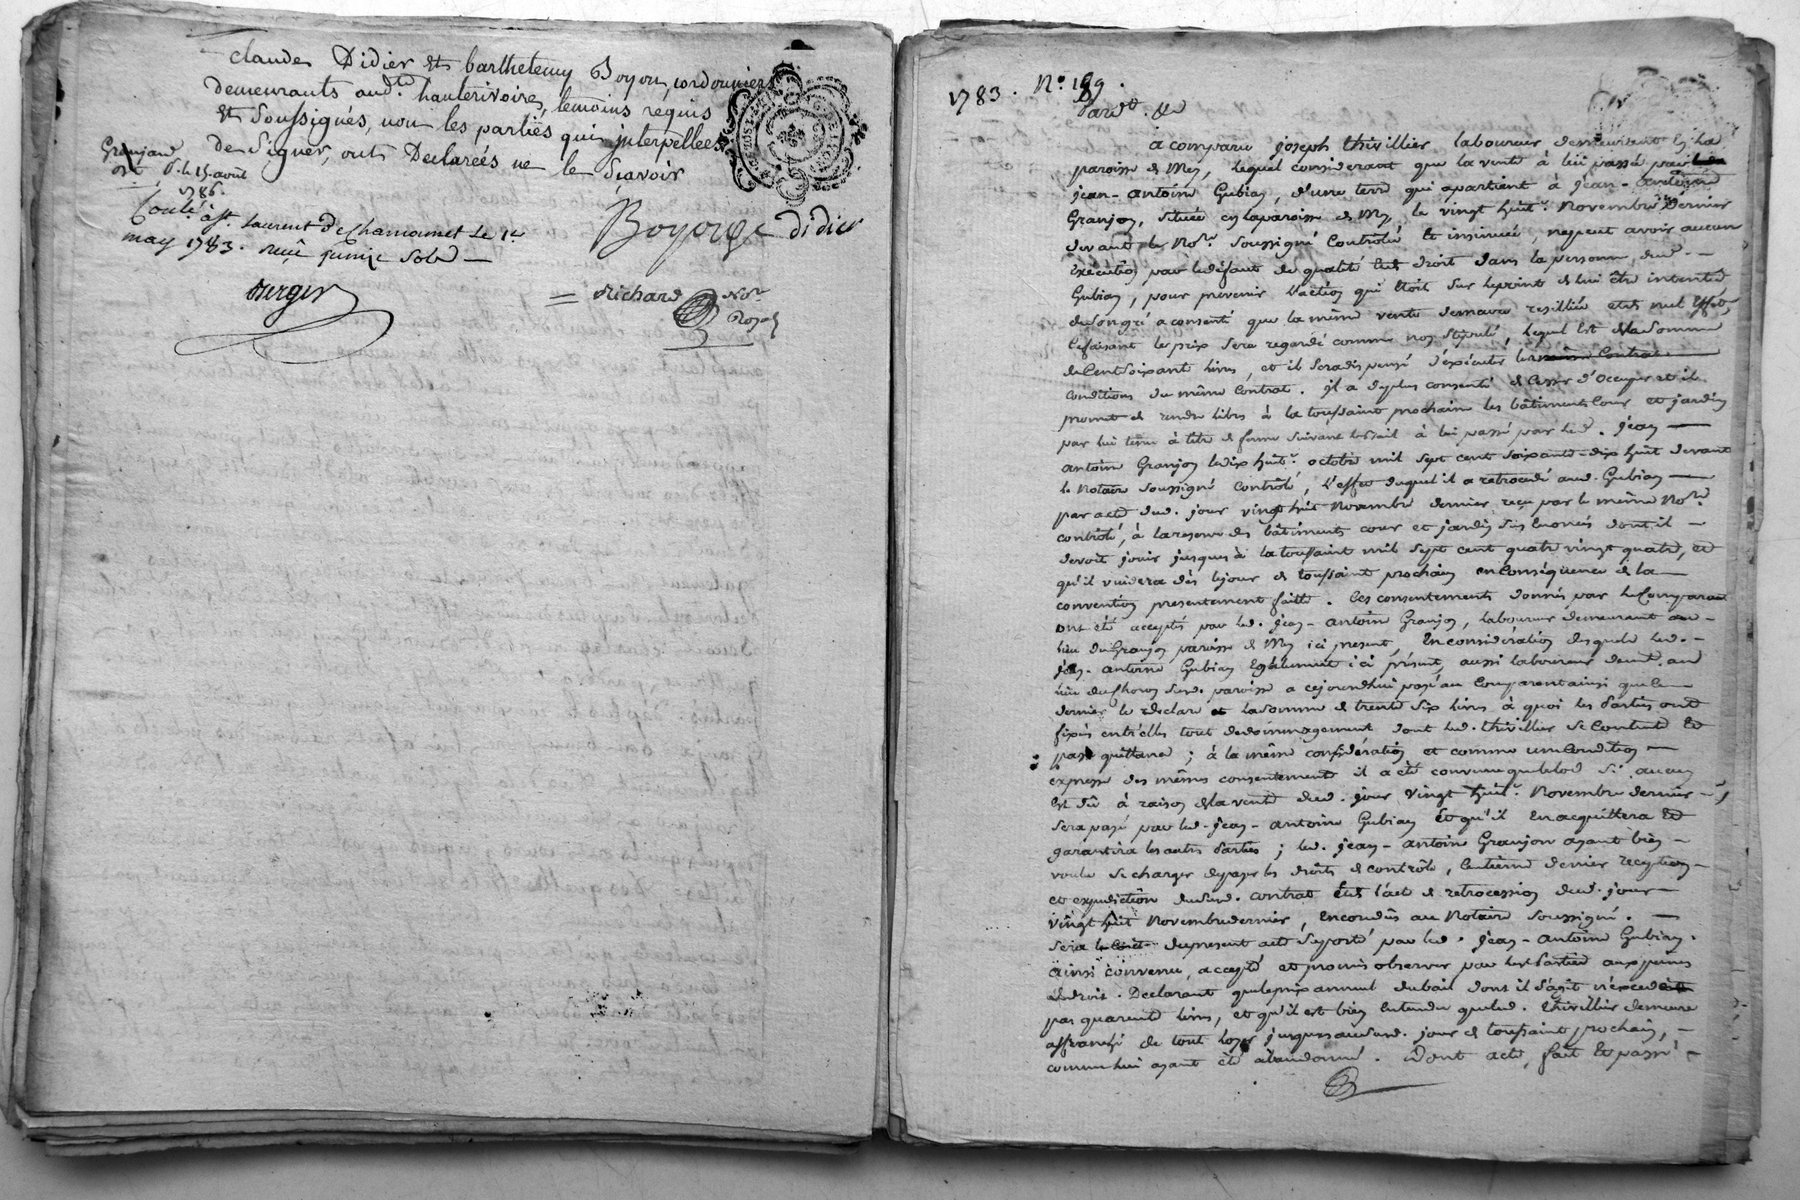 claude Didier et barthelemy Boyou, cordonniers
demeurants aud.t hauterivoire, temoins requis
et soussignés, non les parties qui interpellées
de signer, ont Declareés ne le sçavoir
Granjand
exp.d. le 15. avril
1786.
Conlé à st. Laurent de Chamousset le 1er
may 1783. reçu quinze sols —
Berger
Boyorge didier
= Richard Nore
Royal
1783. No. 189.
Pard.t &a
a comparu joseph thivillier laboureur demeurant en la
paroisse de Meys, lequel considerant que la vente à lui passée par
jean-antoine Gubian, d'une terre qui apartient à jean-antoine
Granjon, située en la paroisse de Meys, le vingt huit.e Novembre dernier
devant le No.re soussigné Controlée et insinuée, ne peut avoir aucune
execution par le défaut de qualité et de droit dans la personne dud. —
Gubian, pour prevenir l'action qui étoit sur le point de lui être intentée
de son gré a consenti que la même vente demeure resilliée et de nul effet,
ce faisant le prix sera regardé comme non stipulé, lequel est de la somme
de Cent soixante livres, et il sera dispensé d'exécuter les
conditions du même Contrat. il a de plus consenti de cesser d'occuper et il
promet de rendre libres à la toussaint prochaine les bâtiments Cour et jardin
par lui tenus à titre de ferme suivant le bail à lui passé par led. jean —
antoine Granjon le dix huit.e octobre mil sept cent soixante-dix huit devant
le Notaire soussigné Controlé, l'effet duquel il a retrocedé aud. Gubian —
par acte dud. jour vingt huit Novembre dernier reçu par le même No.re
controlé, à la reserve des bâtiments cour et jardin sus enoncés dont il —
devoit jouir jusques à la toussaint mil sept cent quatre vingt quatre, et
qu'il vuidera dès le jour de toussaint prochain en Conséquence de la —
convention presentement faitte. Ces consentements donnés par le Comparant
ont été acceptés par led. jean-antoine Granjon, laboureur demeurant au —
lieu du Granjon paroisse de Meys ici present, En considération desquels led. —
jean-antoine Gubian Egalement ici présent, aussi laboureur demt. au
lieu du Thoron susd. paroisse a cejourdhui payé au Comparent ainsi que ce —
dernier le declare la somme de trente six livres à quoi les Parties ont
fixés entr'elles tout dedommagement dont led. thivillier se Contente et
passe quittance ; à la même considération et comme une Condition —
expresse des mêmes consentements il a été convenu que le lod si aucun
Est dû à raison de la vente dud. jour vingt huit.e Novembre dernier —
sera payé par led. jean-antoine Gubian Et qu'il En acquittera et
garantira les autres Parties ; led. jean-antoine Granjon ayant bien —
voulu se charger de payer les droits de contrôle, Centième denier reception —
et expedition dususd. contrat et de l'acte de retrocession dud. jour —
vingt huit Novembre dernier, Encore dûs au Notaire soussigné. —
sera le Coût du present acte suporté par led. jean-antoine Gubian.
ainsi convenu, accepté et promis observer par les Parties aux peines
de droit. Declarant que le prix annuel du bail dont il s'agit n'excede
pas quarente livres, et qu'il est bien Entendu que led. thivillier demeure
affranchi de tout loyer jusques aud. jour de toussaint prochain, —
comme lui ayant été abandonné. Dont acte, fait Et passé —